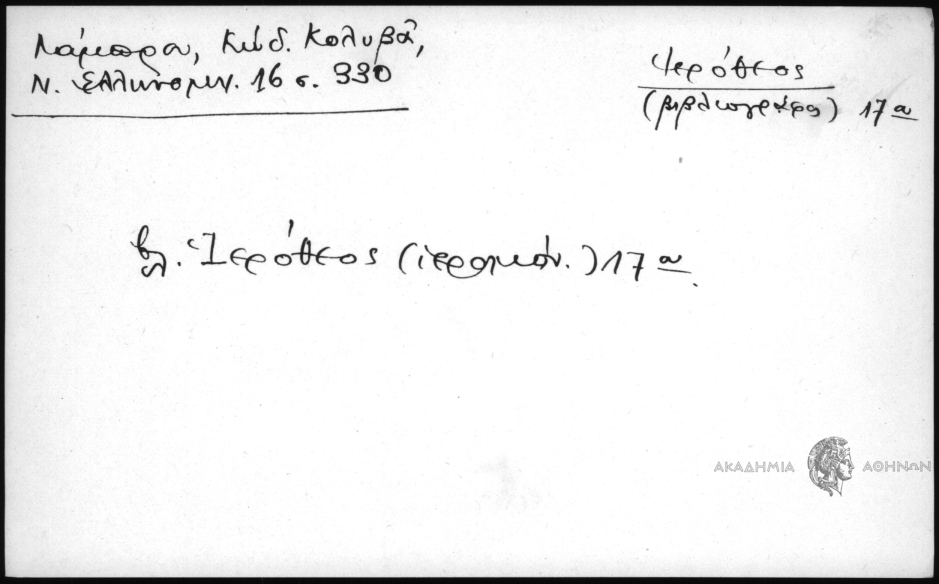 Λάμπρου, Κώδ. Κολυβᾶ,
Ν. Ἑλληνομν. 16 σ. 330
Ἱερόθεος
(βιβλιογράφος) 17 αι
βλ. Ἱερόθεος (ἱερομόν.) 17 αι.
ΑΚΑΔΗΜΙΑ ΑΘΗΝΩΝ